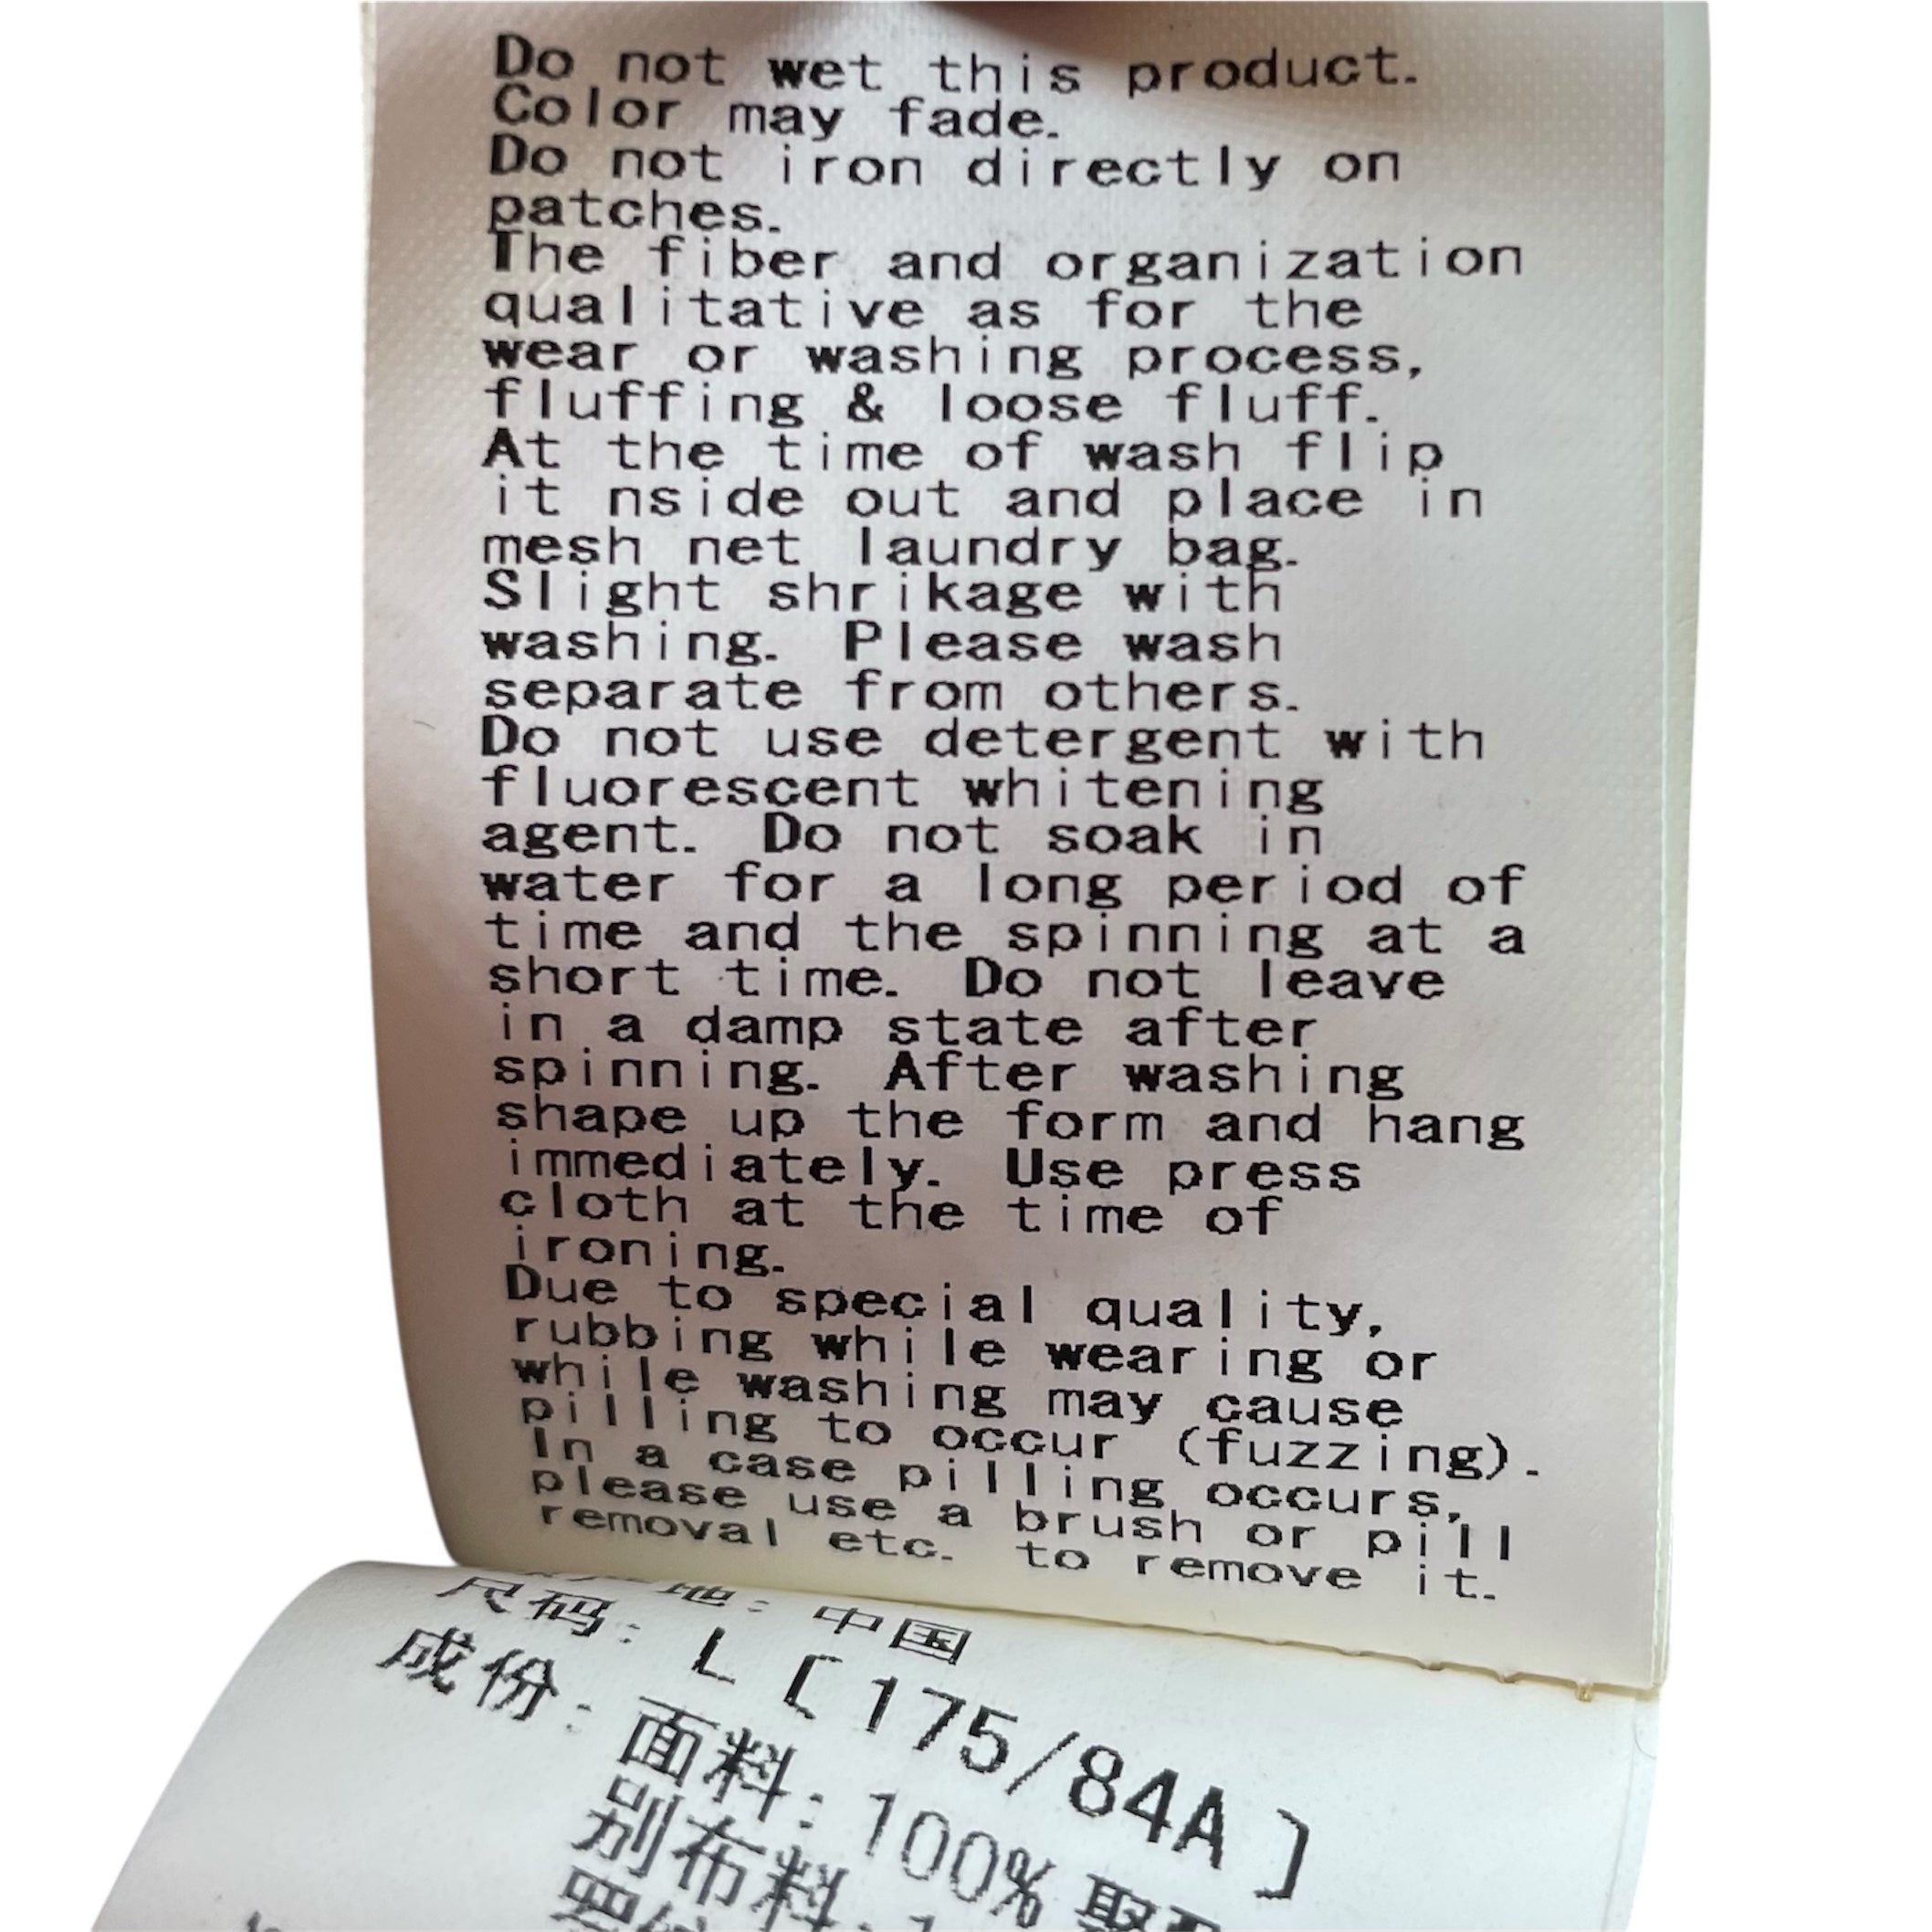 Do not wet this product.
Color may fade.
Do not iron directly on
patches.
The fiber and organization
qualitative as for the
wear or washing process,
fluffing & loose fluff.
At the time of wash flip
it nside out and place in
mesh net laundry bag.
Slight shrikage with
washing. Please wash
separate from others.
Do not use detergent with
fluorescent whitening
agent. Do not soak in
water for a long period of
time and the spinning at a
short time. Do not leave
in a damp state after
spinning. After washing
shape up the form and hang
immediately. Use press
cloth at the time of
ironing.
Due to special quality,
rubbing while wearing or
while washing may cause
pilling to occur (fuzzing).
In a case pilling occurs,
please use a brush or pill
removal etc. to remove it.
地: 中国
尺码: L [175/84A]
成份: 面料: 100% 聚
别布料: